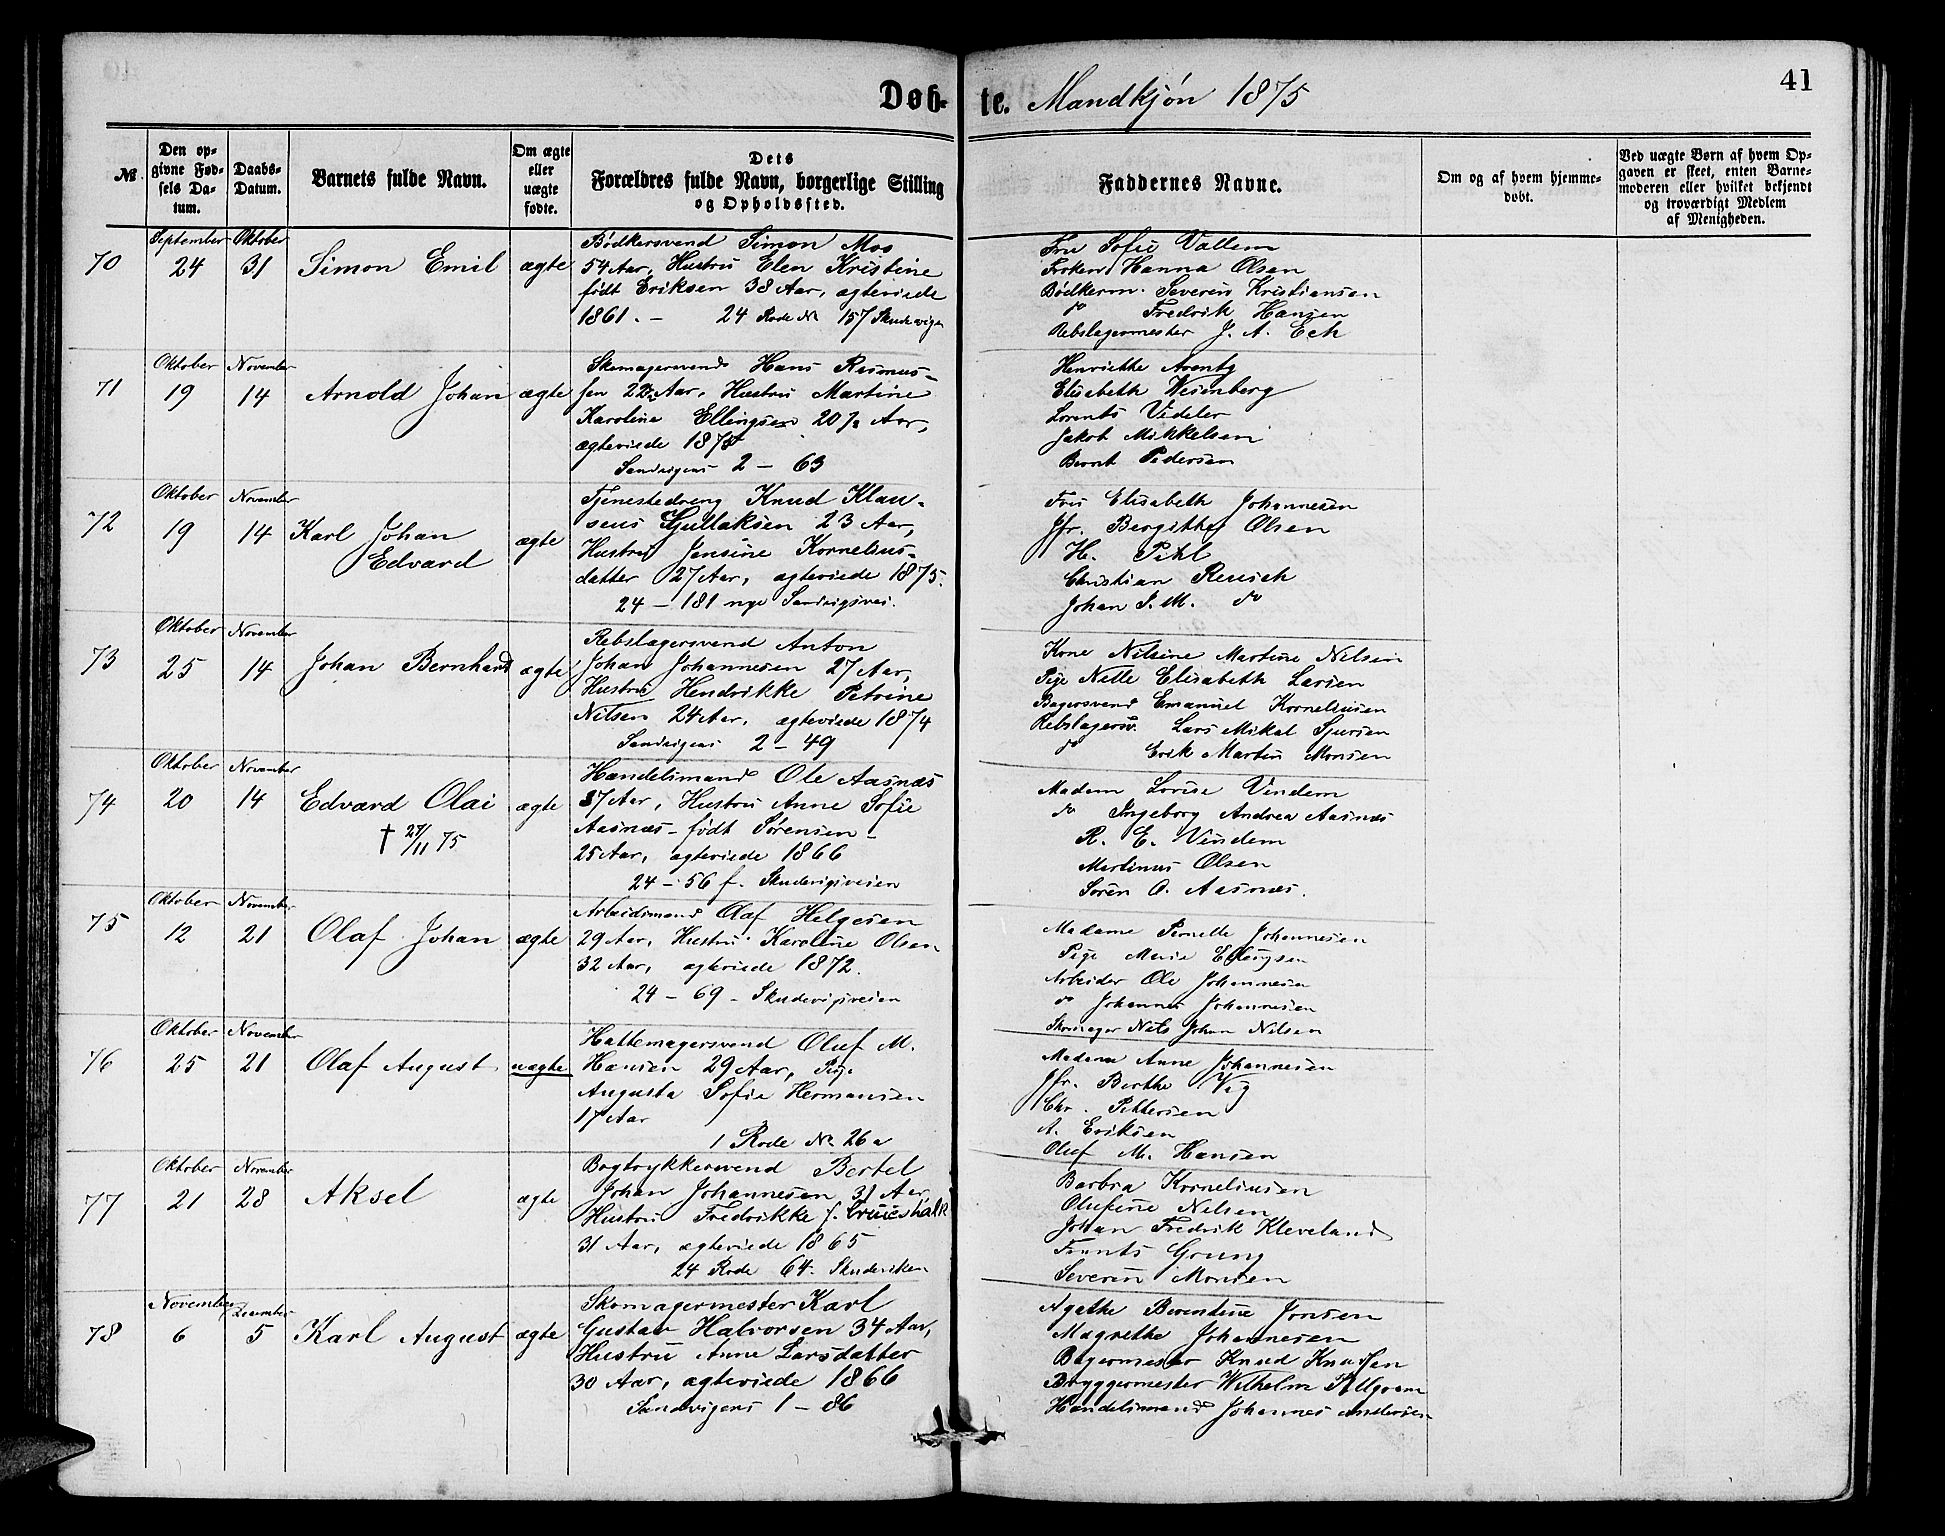 Døb- te. Mandkjøn 1875
41
№
Den op-
givne Fød-
sels Da-
tum.
Daabs-
Datum.
Barnets fulde Navn.
Om ægte
eller
uægte
fødte.
Dets
Forældres fulde Navn, borgerlige Stilling
og Opholdssted.
Faddernes Navne.
Om og af hvem hjemme-
døbt.
Ved uægte Børn af hvem Op-
gaven er skeet, enten Barne-
moderen eller hvilket bekjendt
og troværdigt Medlem
af Menigheden.
70
September
24
Oktober
31
Simon Emil
ægte
Bødkersvend Simon Mos
54 Aar, Hustru Elen Kristine
født Eriksen 38 Aar, ægteviede
1861. - 24 Rode № 157 Skudevigen
Fru Sofie Vallem
Frøken Hanna Olsen
Bødkerm. Severin Kristiansen
do Fredrik Hansen
Rebslagermester J. A. Eck
71
Oktober
19
November
14
Arnold Johan
ægte
Skomagersvend Hans Rasmus-
sen 22 Aar, Hustru Martine
Karoline Ellingsen 20 ½ Aar,
ægteviede 1875
Sandvigens 2 - 63
Henriette Arentz
Elisabeth Wesenberg
Lorents Videler
Jakob Mikkelsen
Bernt Pedersen
72
Oktober
19
November
14
Karl Johan
Edvard
ægte
Tjenestedreng Knud Klau-
sens Gullaksen 23 Aar,
Hustru Jensine Kornelius-
datter 27 Aar, ægteviede 1875.
24 - 181 nye Sandvigsvei.
Fru Elisabeth Johannesen
Jfr. Bergitte Olsen
H. Pihl
Christian Reusch
Johan S. M. do
73
Oktober
25
November
14
Johan Bernhard
ægte
Rebslagersvend Anton
Johan Johannesen 27 Aar,
Hustru Hendrikke Petrine
Nilsen 24 Aar, ægteviede 1874
Sandvigens 2 - 49
Kone Nilsine Martine Nilsen
Pige Nelle Elisabeth Larsen
Bagersvend Emanuel Kornelius­en
Rebslagersv. Lars Mikal Sjursen
do Erik Martin Monsen
74
Oktober
20
November
14
Edvard Olai
† 27/11 75
ægte
Handelsmand Ole Aasnæs
37 Aar, Hustru Anne Sofie
Aasnæs - født Sørensen -
25 Aar, ægteviede 1866
24 - 56 f. Skudevigsveien
Madam Lovise Vindem
do Ingeborg Andrea Aasnæs
R. E. Vindem
Martinus Olsen
Sørén O. Aasnæs.
75
Oktober
12
November
21
Olaf Johan
ægte
Arbeidsmand Olaf Helgesen
29 Aar, Hustru Karoline Olsen
32 Aar, ægteviede 1872.
24 - 69 - Skudevigsveien
Madame Pernelle Johannesen
Pige Marie Ellingsen
Arbeider Ole Johannesen
do Johannes Johannesen
Skomager Nils Johan Nilsen
76
Oktober
25
November
21
Olaf August
uægte
Hattemagersvend Oluf M.
Hansen 29 Aar, Pige
Augusta Sofie Hermansen
17 Aar
1 Rode № 26 a
Madam Anne Johannesen
Jfr. Berthe Vig
Chr. Pettersen
A. Eriksen
Oluf M. Hansen
77
Oktober
21
November
28
Aksel
ægte
Bogtrykkersvend Bertel
Johan Johannesen 31 Aar,
Hustru Fredrikke f.
31 Aar, ægteviede 1865
24 Rode 64. Skudeviken
Barbra Korneliusen
Olufine Nilsen
Johan Fredrik Kleveland
Frants Grung
Severin Monsen
78
November
6
December
5
Karl August
ægte
Skomagermester Karl
Gustav Halvorsen 34 Aar,
Hustru Anne Larsdatter
30 Aar, ægteviede 1866
Sandvigens 1 - 86
Agathe Berentine Jonsen
Magrethe Johannesen
Bagermester Knud Knudsen
Bryggermester Wilhelm
Handelsmand Johannes Andersen